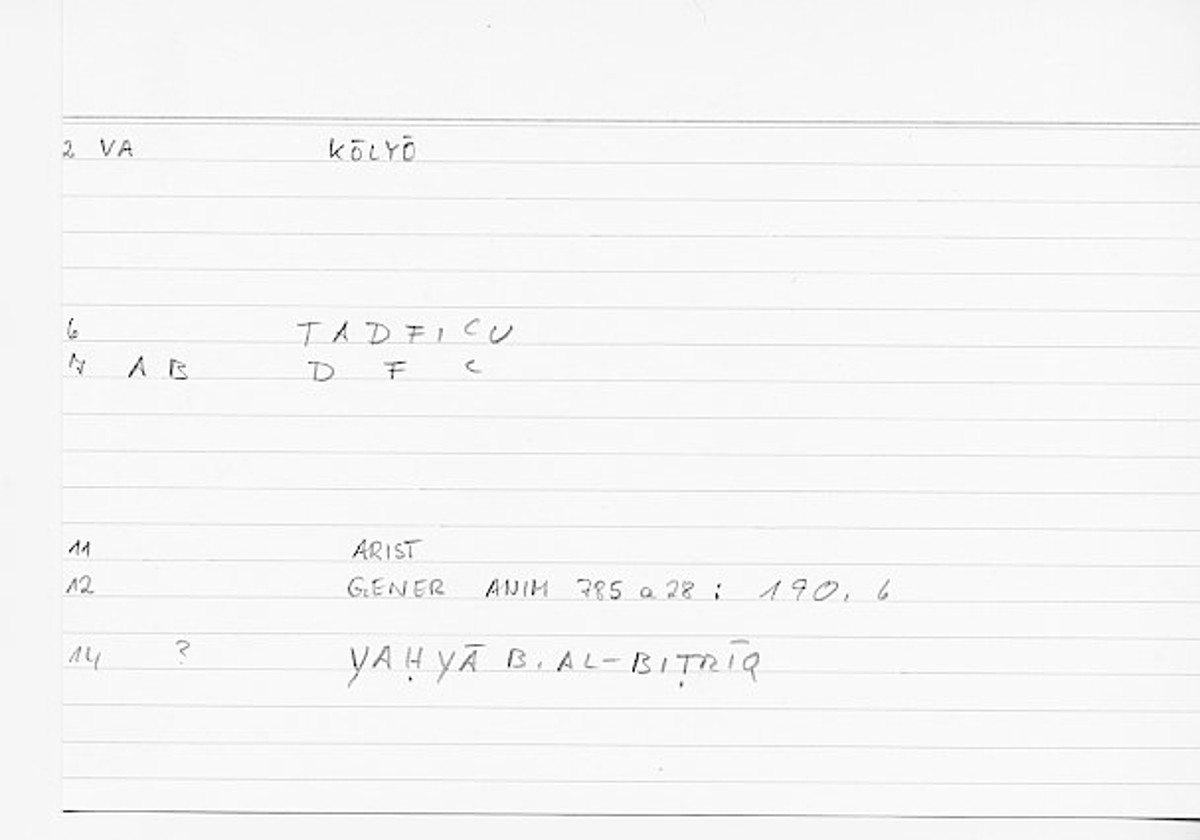 2 VA KŌLYŌ
6 TADFICU
7 A B D F C
11 ARIST
12 GENER ANIM 785 a 28 : 190, 6
14 ? YAḤYĀ B. AL-BIṬRĪQ